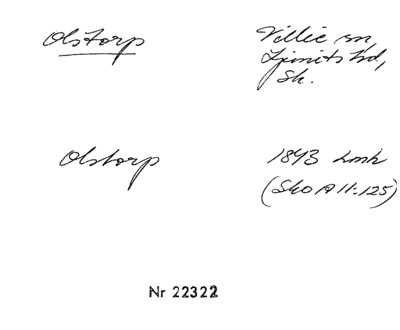 Olstorp
Villie sn,
Ljunits hd,
Sk.
Olstorp
1893 Lmk
(Sko A 11:125)
Nr 22322